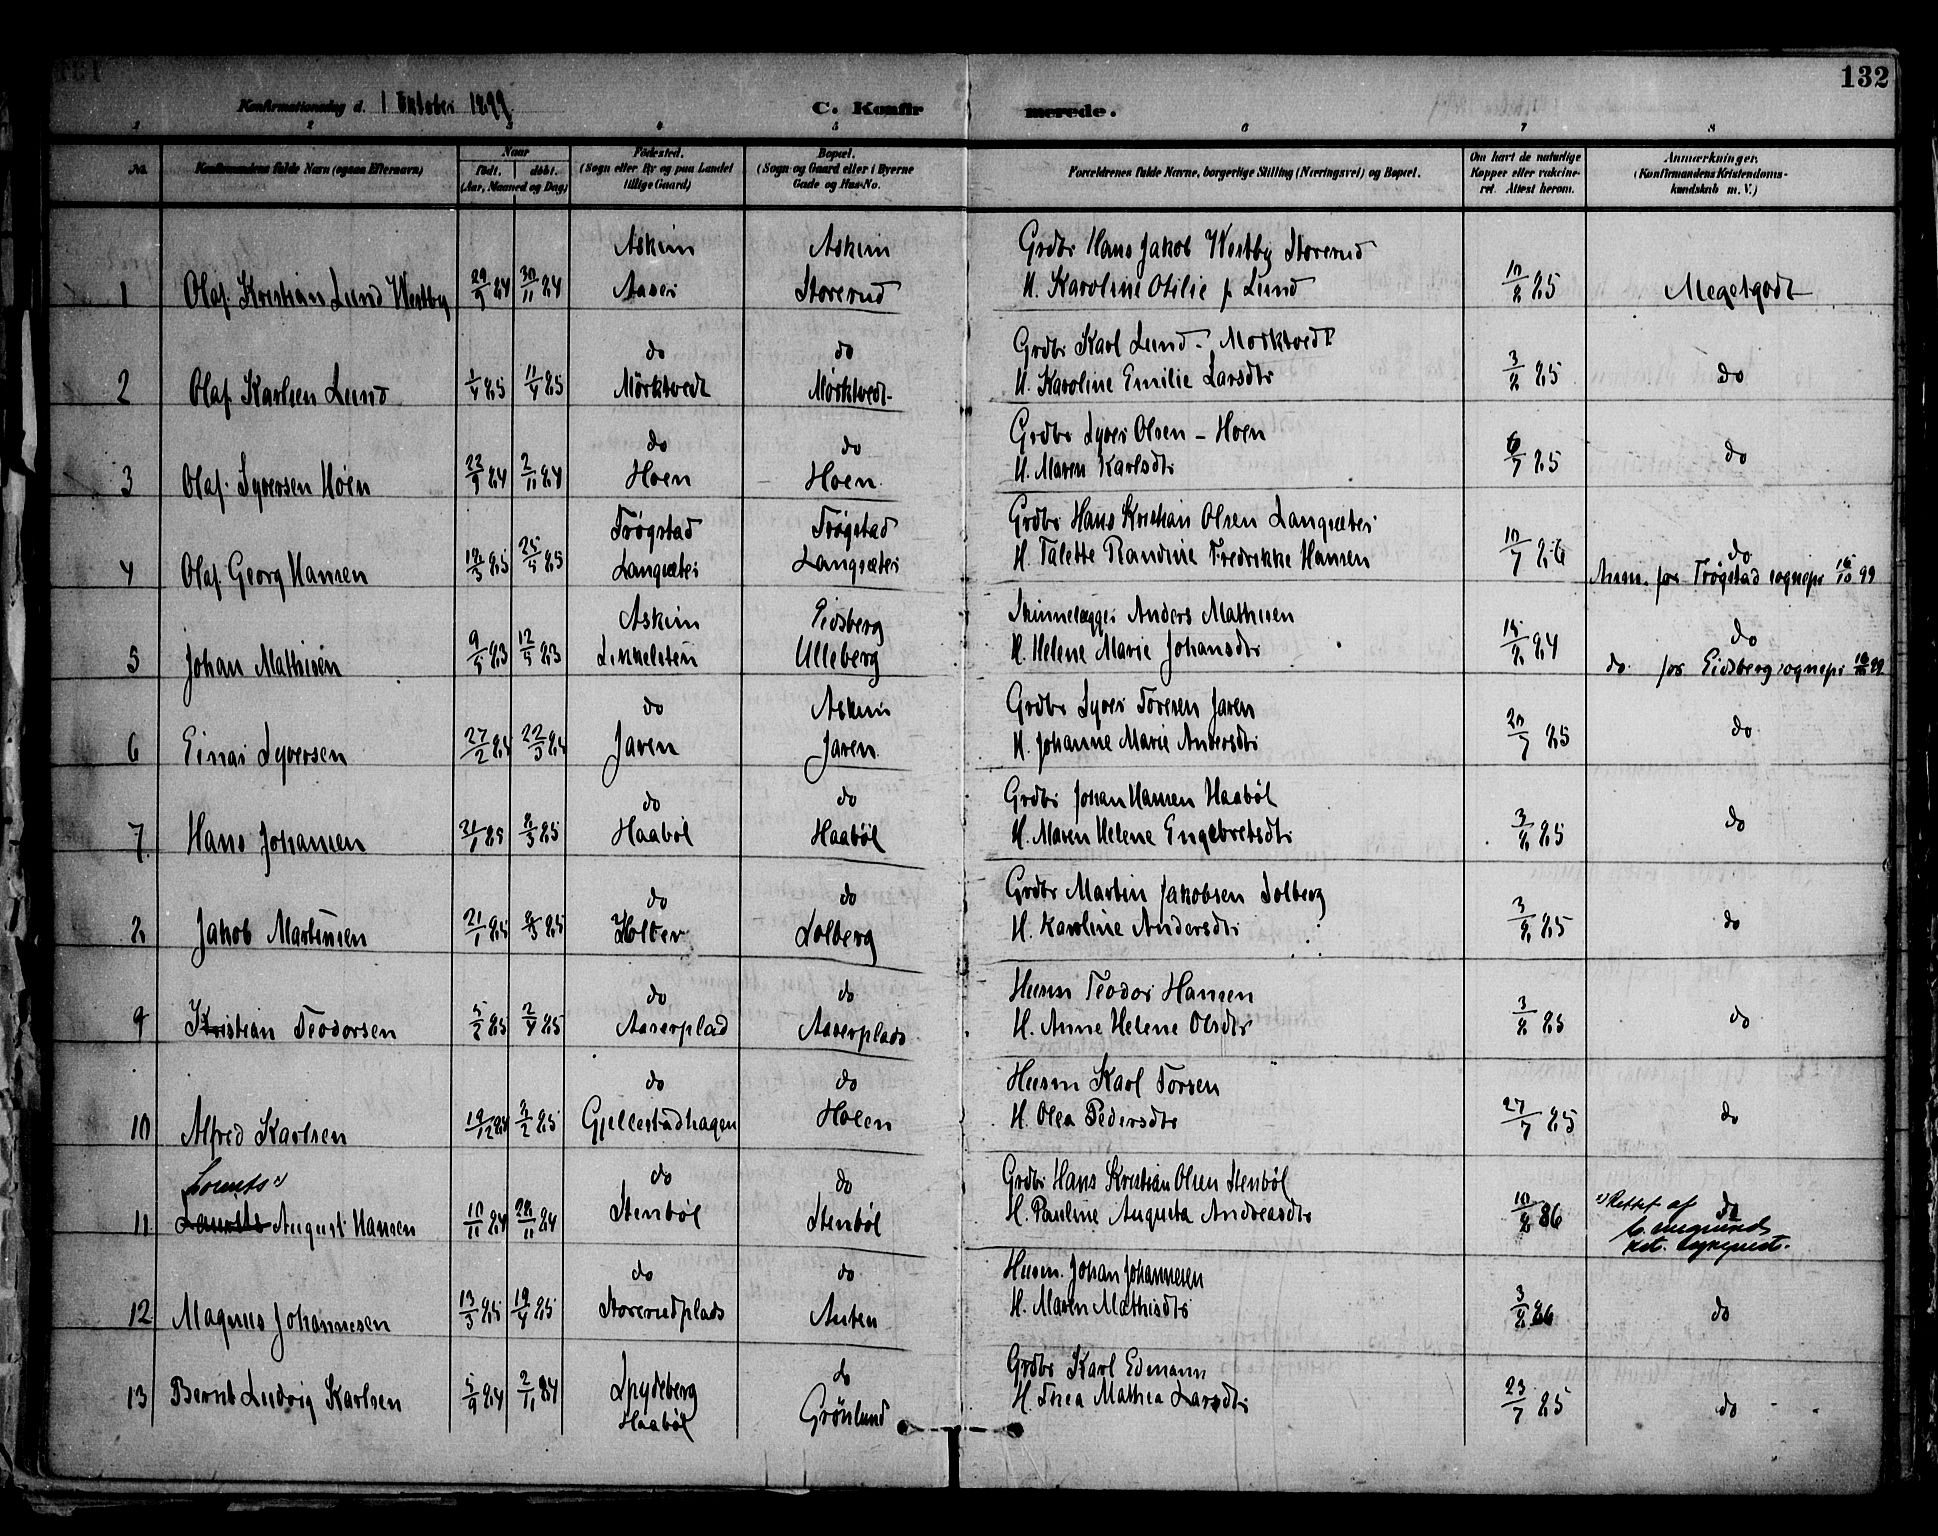 132
Konfirmationsdag d. 1 Oktober 1899
C. Konfirmerede.
1 2 3 4 5 6 7 8
No. Konfirmandens fulde Navn (ogsaa Efternavn) Naar født. døbt. (Aar, Maaned og Dag) Fødested. (Sogn eller By og paa Landet tillige Gaard) Bopæl. (Sogn og Gaard eller i Byerne Gade og Hus-No. Forældrenes fulde Navne, borgerlige Stilling (Næringsvei) og Bopæl. Om havt de naturlige Kopper eller vaccineret. Attest herom. Anmærkninger. (Konfirmandens Kristendomskundskab m. V.)
Askim Askim Grdbr Hans Jakob Westby Storerud
1 Olaf Kristian Lund Westby 29/9 84 30/11 84 Aaser Storerud H. Karoline Otilie f. Lund 10/8 85 Megetgodt
do do Grdbr Karl Lund - Mørktvedt
2 Olaf Karlsen Lund 1/4 85 11/4 85 Mörktvedt Mørktvedt H. Karoline Emilie Larsdtr 3/8 85 do
do do Grdbr Syver Olsen - Hoen
3 Olaf Syversen Höen 23/9 84 2/11 84 Hoen Hoen H. Maren Karlsdtr 6/7 85 do
Trögstad Trögstad Grdbr Hans Kristian Olsen Langsæter
4 Olaf Georg Hansen 18/3 85 25/5 85 Langsæter Langsæter H. Talette Randine Fredrikke Hansen 10/7 86 do
Anm. for Trögstad sognepr 16/10 99
Askim Eidsberg Skinnelægger Anders Mathisen
5 Johan Mathisen 9/4 83 12/5 83 Ulleberg H. Helene Marie Johansdtr 15/8 84 do
do for Eidsberg sognepr 16/10 99
do Askim Grdbr Syver Toresen Jaren
6 Einar Syversen 27/2 84 22/3 84 Jaren Jaren H. Johanne Marie Andersdtr 20/7 85 do
do do Grdbr Johan Hansen Haaböl
7 Hans Johansen 31/1 85 8/3 85 Haaböl Haaböl H. Maren Helene Engebretsdtr 3/8 85 do
do do Grdbr Martin Jakobsen Solberg
8 Jakob Martinsen 21/1 85 8/3 85 Holter Solberg H. Karoline Andersdtr 3/8 85 do
do do Husm Teodor Hansen
9 Kristian Teodorsen 5/2 85 2/4 85 Aaserplad Aaserplads H. Anne Helene Olsdtr 3/8 85 do
do do Husm Karl Torsen
10 Alfred Karlsen 19/12 84 8/2 85 Gjellestadhagen Holen H. Olea Pedersdtr 27/7 85 do
Lorents 1) do do Grdbr Hans Kristian Olsen Stenböl
11 Laurits August Hansen 10/11 84 28/11 84 Stenböl Stenböl H. Pauline Augusta Andreasdtr 10/8 86 do
1) Rettet af
kst. sogneprest.
do do Husm. Johan Johannesen
12 Magnus Johannesen 13/3 85 19/4 85 Storerudplads Auten H. Maren Mathisdtr 3/8 86 do
Spydeberg do Grdbr Karl Edmann
13 Bernt Ludvig Karlsen 5/9 84 2/11 84 Haaböl Grönlund H. Thea Mathea Larsdtr 23/7 85 do